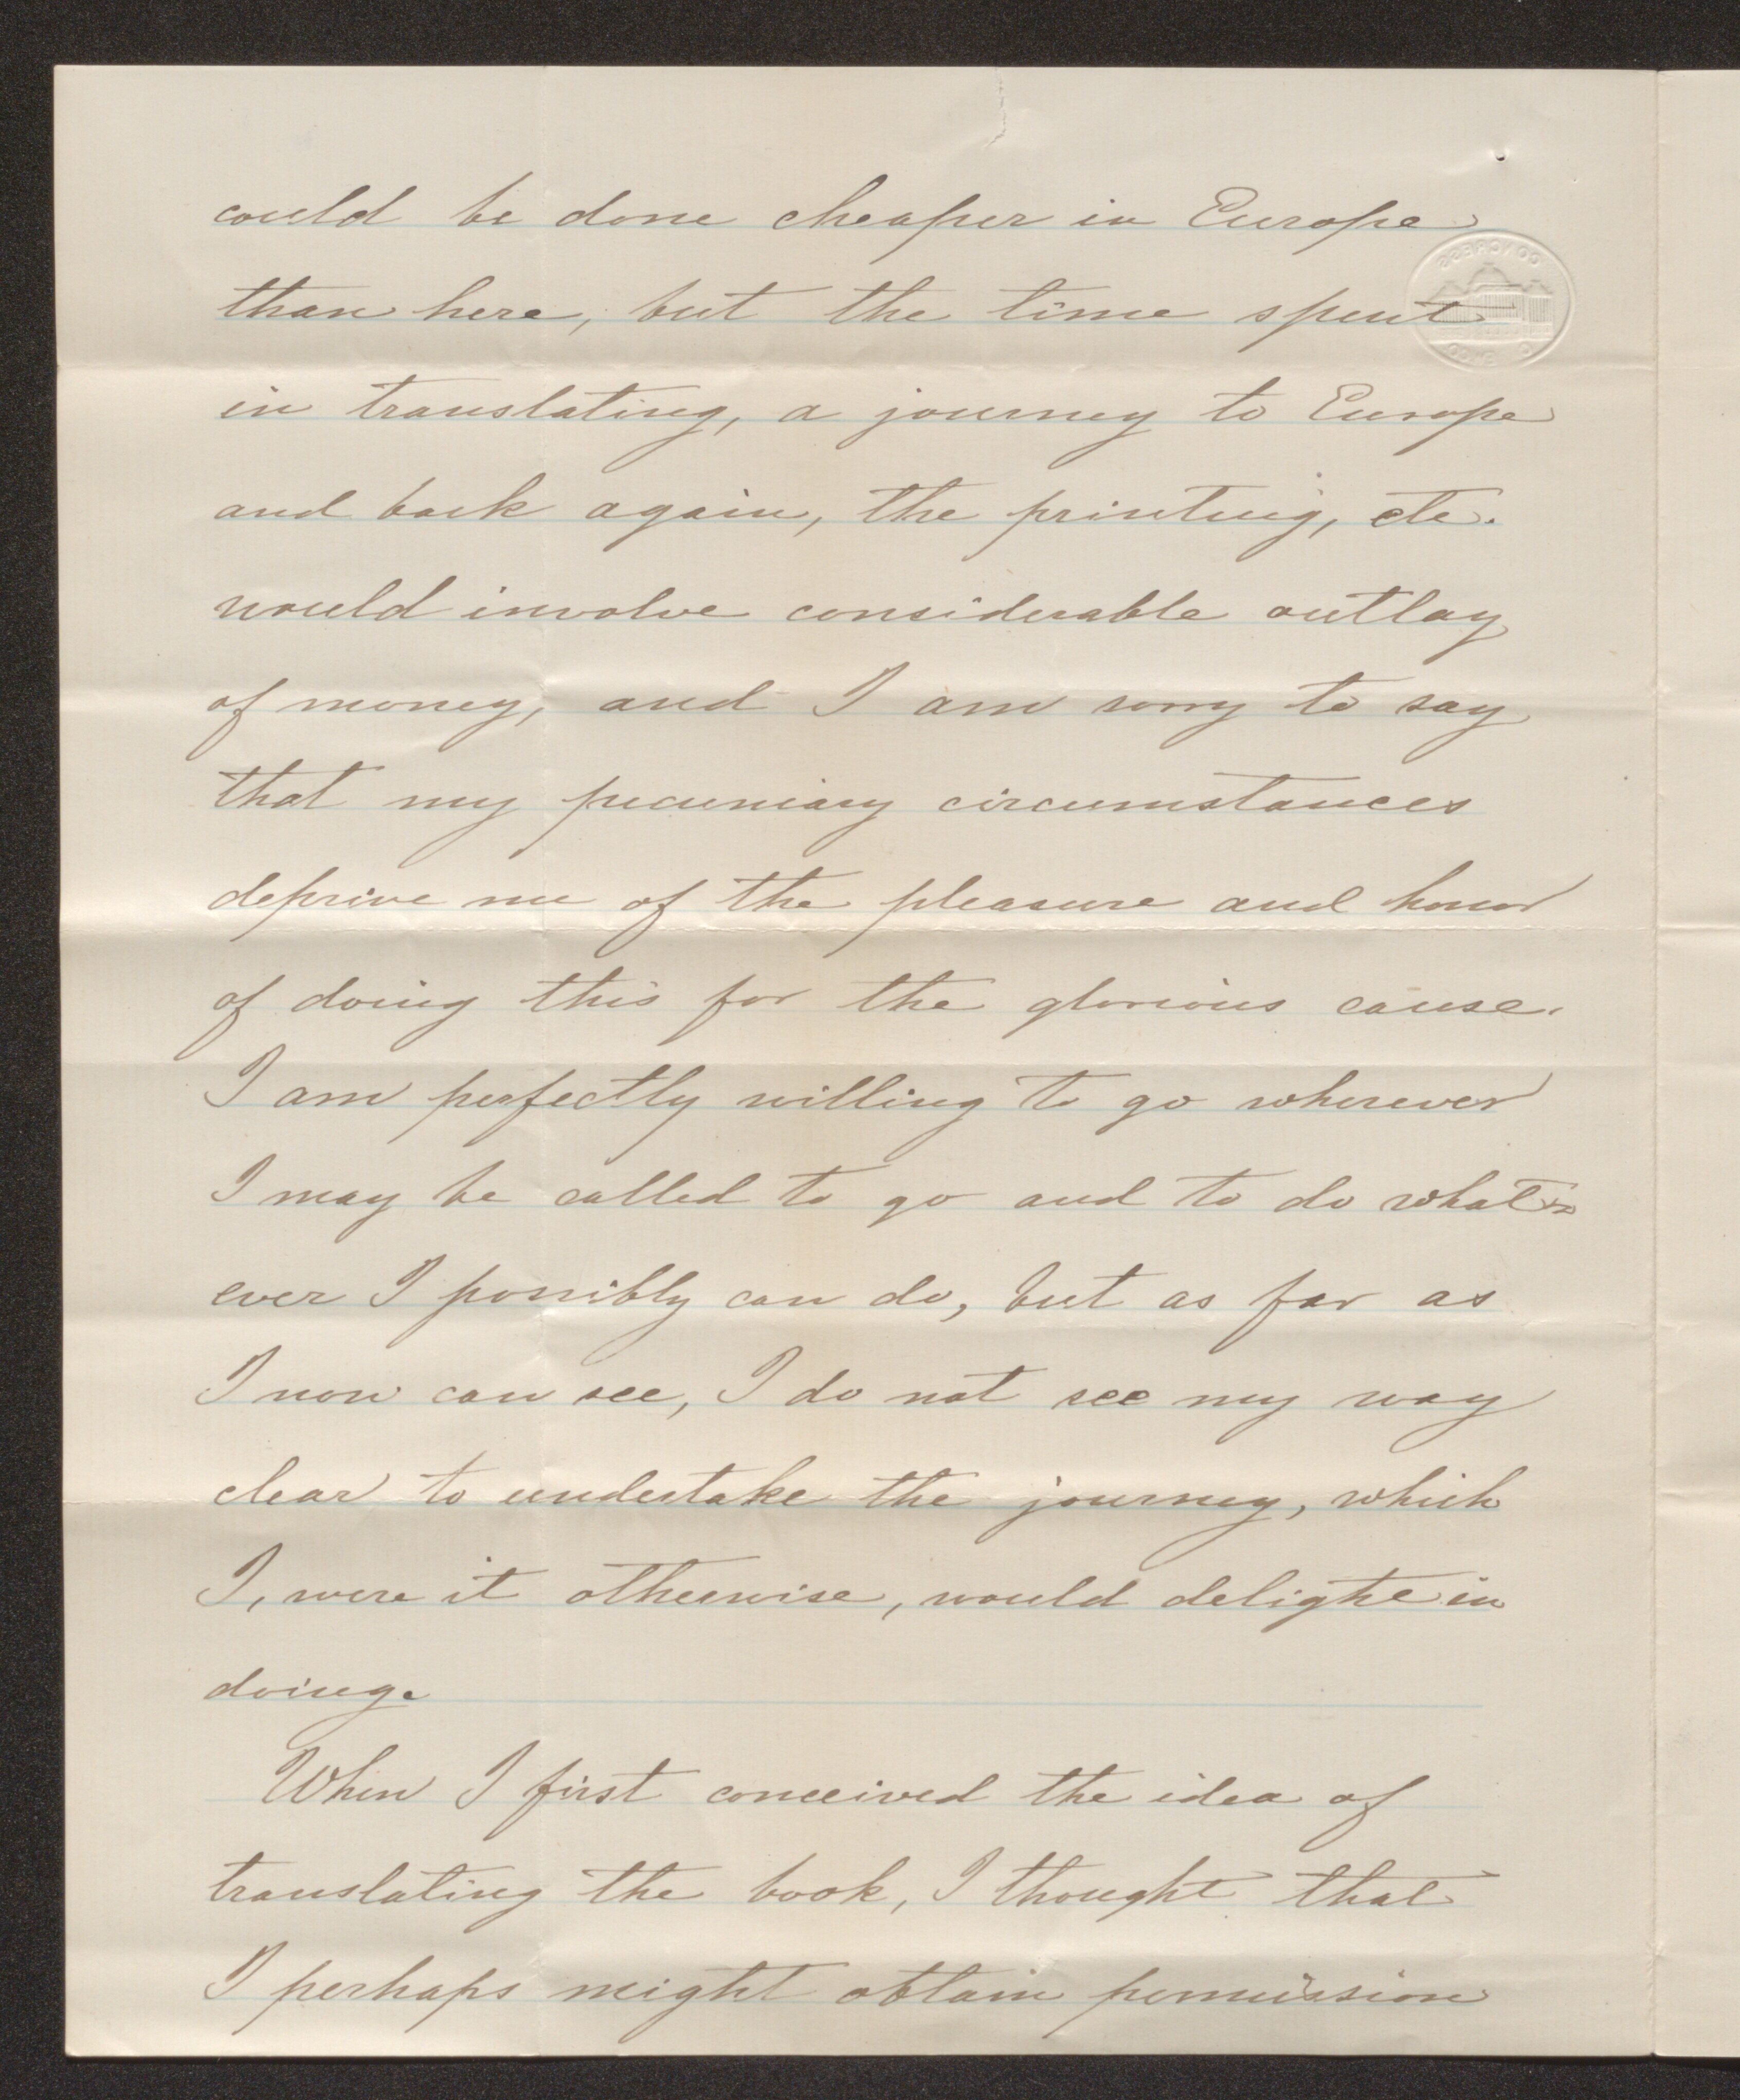 could be done cheaper in Europe
than here, but the time spent
in translating, a journey to Europe
and back again, the printing, etc.
would involve considerable outlay
of money, and I am sorry to say
that my pecuniary circumstances
deprive me of the pleasure and honor
of doing this for the glorious cause.
I am perfectly willing to go wherever
I may be called to go and to do what=
ever I possibly can do, but as far as
I now can see, I do not see my way
clear to undertake the journey, which
I, were it otherwise, would delight in
doing.
When I first conceived the idea of
translating the book, I thought that
I perhaps might obtain permission
CONGRESS